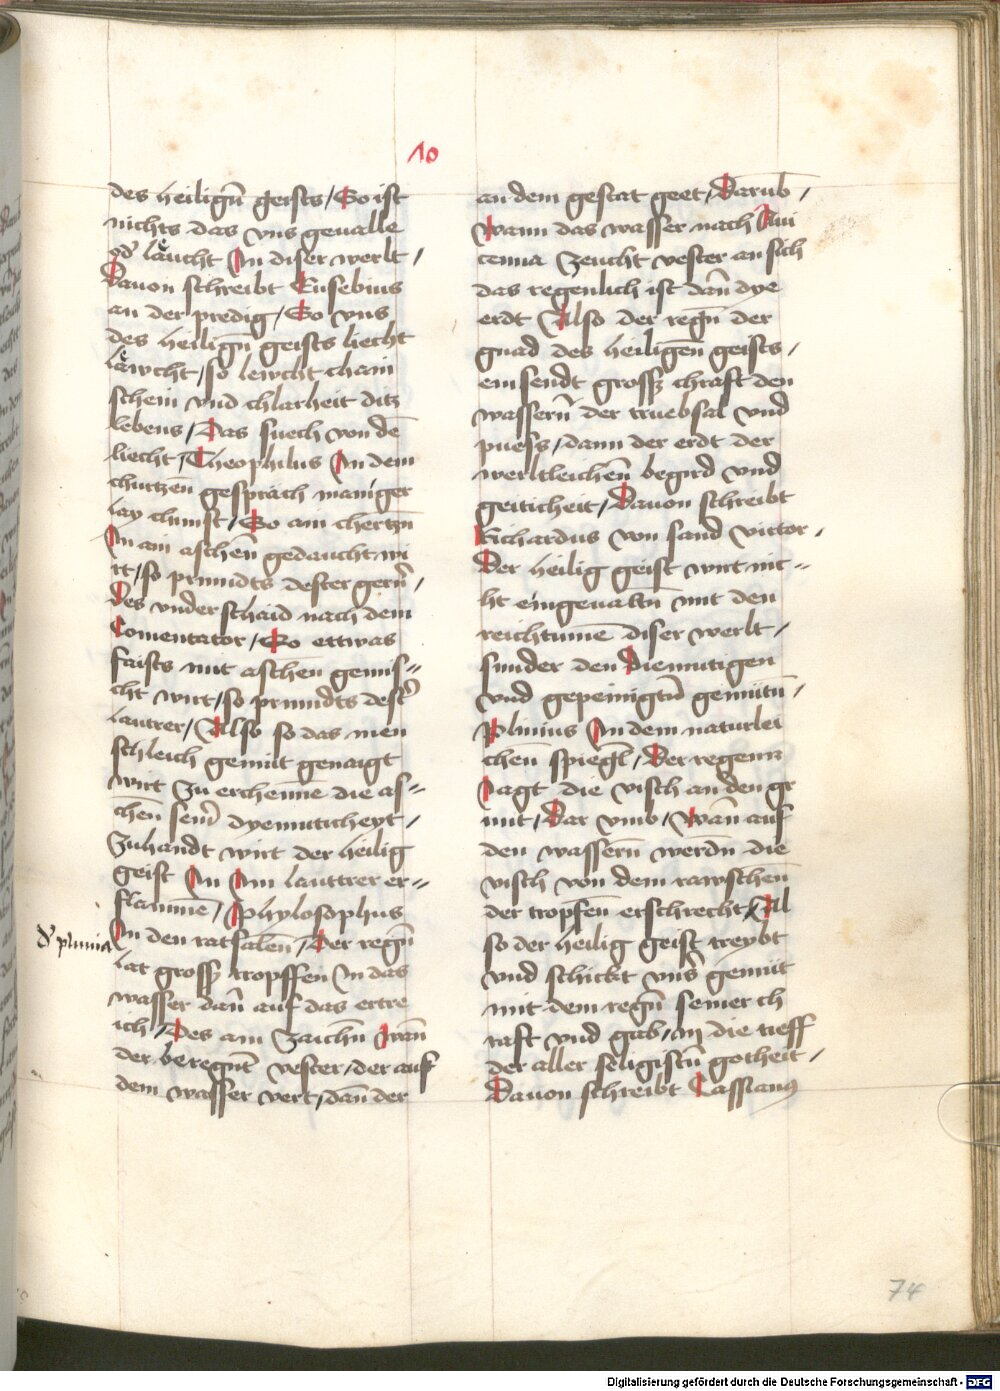 10
des heiligñ geists / So ist
nichts das vns geualle
od' laücht In diser werlt /
Dauon schreibt Eusebius
an der predig / So vns
des heiligñ geists liecht
läwcht / so lewcht chain
schein vnd chlarheit ditz
lebens / Das suech von dē
liecht / Theophilus In dem
churtzēn gespräch maniger
lay chunst / So ain chertzñ
In ain aschēn gedaucht wi
rt / so prinndts dester gerñ /
Des vnderschaid nach dem
Comentator / So ettwas
faists mit aschen gemis=
cht wirt / so prinndts dest'
lautrer / Also so das men
schleich gemüt genaigt
wirt Zu erchennē die as=
chēn seinr̄ dyemuticheyt /
Zuhandt wirt der heilig
geist In Im lauttrer er=
flammē / Phylosophus
d' pluuia
In den ratsalēn / Der regñ
hat gross tropffen In das
wasser dañ auf das ertre
ich / Des ain Zaichñ Wañ
der beregnt vester / der auf
dem wasser vert / dañ der
an dem gestat geet / Darūb /
Wann das wasser nach Aui
cenna Zeucht vester an sich
das regenlich ist dañ dye
erdt Also der regñ der
gnad des heiligēn geists /
einsendt gross chraft den
wasserñ der truebsal vnd
puess / dann der erdt der
werltleichēn begird vnd
geiticheit / Dauon schreibt
Richardus von sand victor /
Der heilig geist wirt nit=
ht eingeualtn mit den
reichtumē diser werlt /
sunder den Diemutigen
vnd gepeinigtñ gemütñ /
Plinius In dem naturlei
chēn spiegl / Der regenn
Iagt die visch an den gr
unt / Dar vmb / Wañ auf
den wasserñ werdñ die
visch von dem rawschēn
der tropfēn erschrecht / Al
so der heilig geist treybt
vnd schickt vnsr̄ gemüt
mit dem regñ seiner ch
raft vnd gab / in die tieff
der aller seligistñ gotheit /
Dauon schreibt Cassianus
74
Digitalisierung gefördert durch die Deutsche Forschungsgemeinschaft - DFG